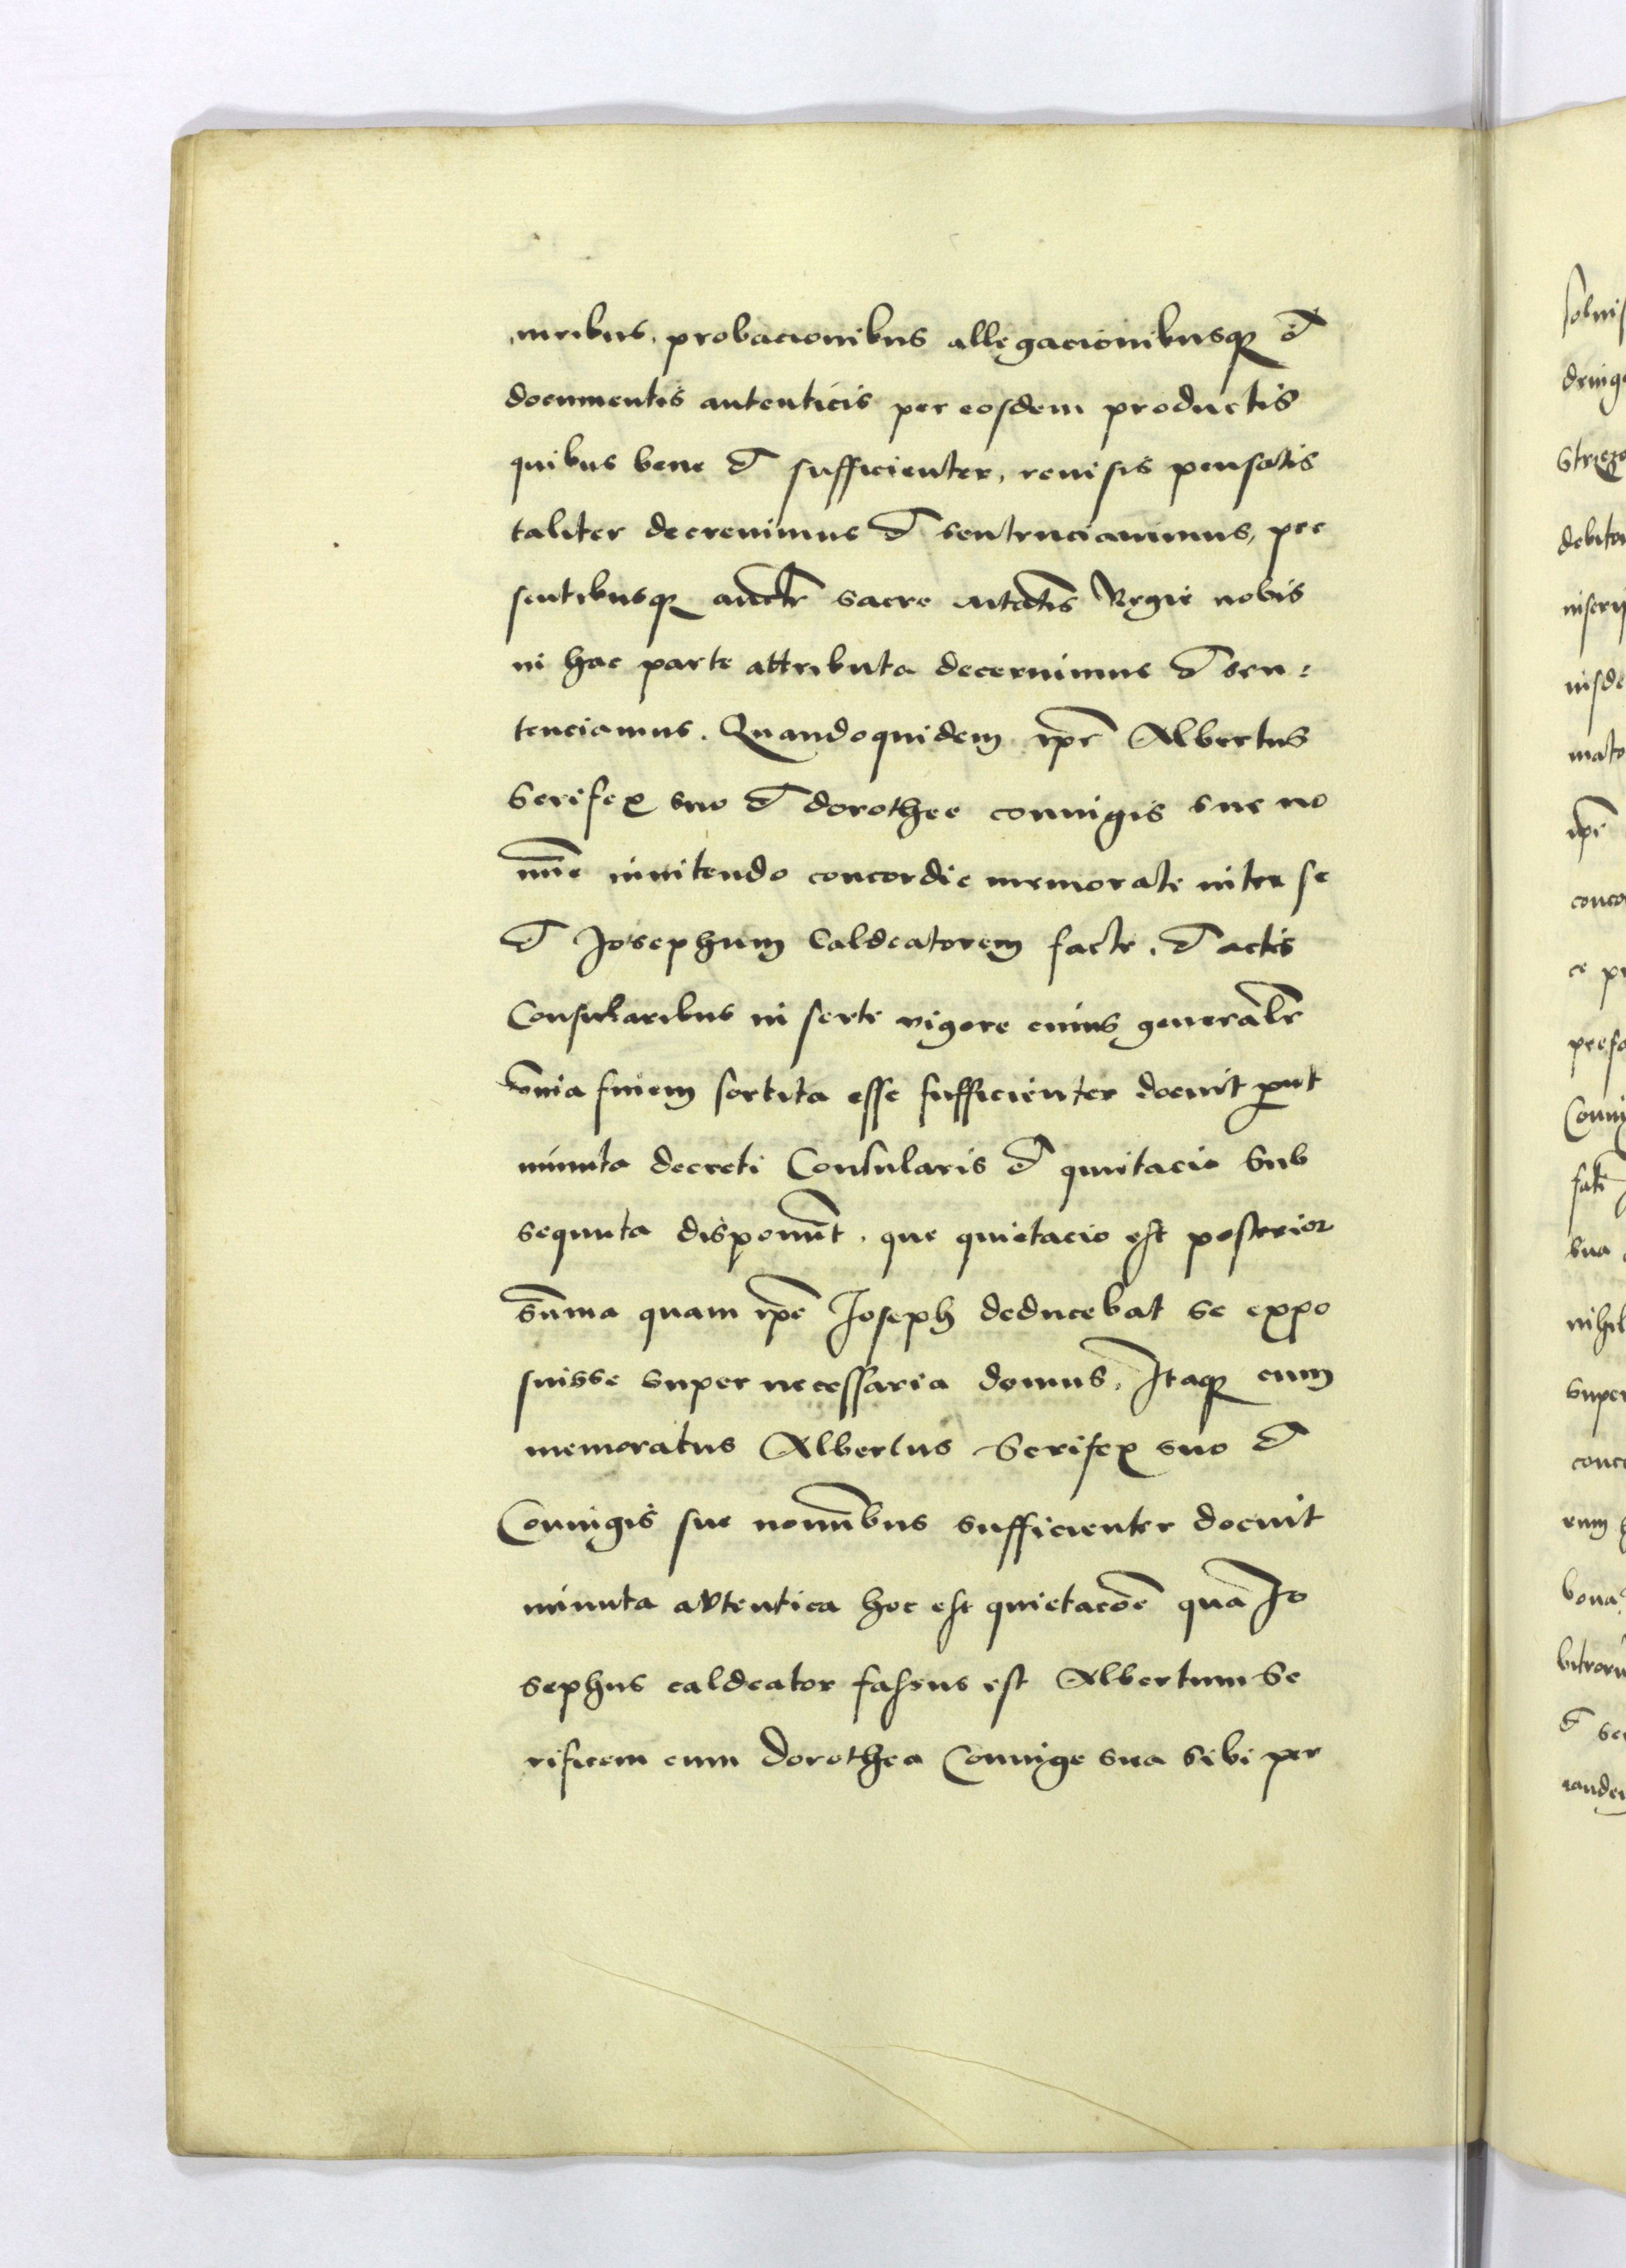 iuribus, probacionibus allegacionibusq; et
documentis autenticis per eosdem productis
quibus bene et sufficienter, reuisis pensatis
taliter decreuimus et sentenciauimus, pre
sentibusq; auctte sacre Mtatis Regie nobis
in hac parte attributa decernimus et sen:
tenciamus. Quandoquidem ipse Albertus
Serifex suo et dorothee coniugis sue no
mine innitendo concordie memorate inter se
et Josephum Caldeatorem facte, et actis
Consularibus in serte vigore cuius generalr
omnia finem sortita esse sufficienter docuit prout
minuta decreti Consularis et quitacio sub
sequuta disponunt, que quietacio est posterior
summa quam ipse Joseph deducebat se expo
suisse super necessaria domus, Itaq; cum
memoratus Albertus Serifex suo et
Coniugis sue nominibus sufficienter docuit
minuta avtentica hoc est quietacoe qua Jo
sephus caldeator fassus est Albertum Se
rificem cum Dorothea Coniuge sua sibi per
solui
debito
mato
ipi
ce
Coniu
sua
nihil
super
bona
et
eande